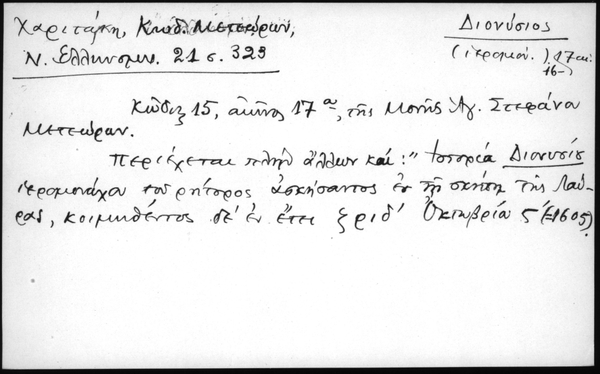 Χαριτάκη, Κωδ. Μετεώρων,
Ν. Ελληνομν. 21 σ. 323
Διονύσιος
(ιερομον.) 17 αι.
16-
Κῶδιξ 15, αἰῶνος 17ου, τῆς Μονῆς Ἁγ. Στεφάνου
Μετεώρων.
Περιέχεται πλὴν ἄλλων καί: "Ἱστορία Διονυσίου
ἱερομονάχου τοῦ ρήτορος ἀσκήσαντος ἐν τῇ σκήτῃ τῆς Λαύ-
ρας, κοιμηθέντος δέ ἐν ἔτει ζριδ' Ὀκτωβρίου 5 (=1605).